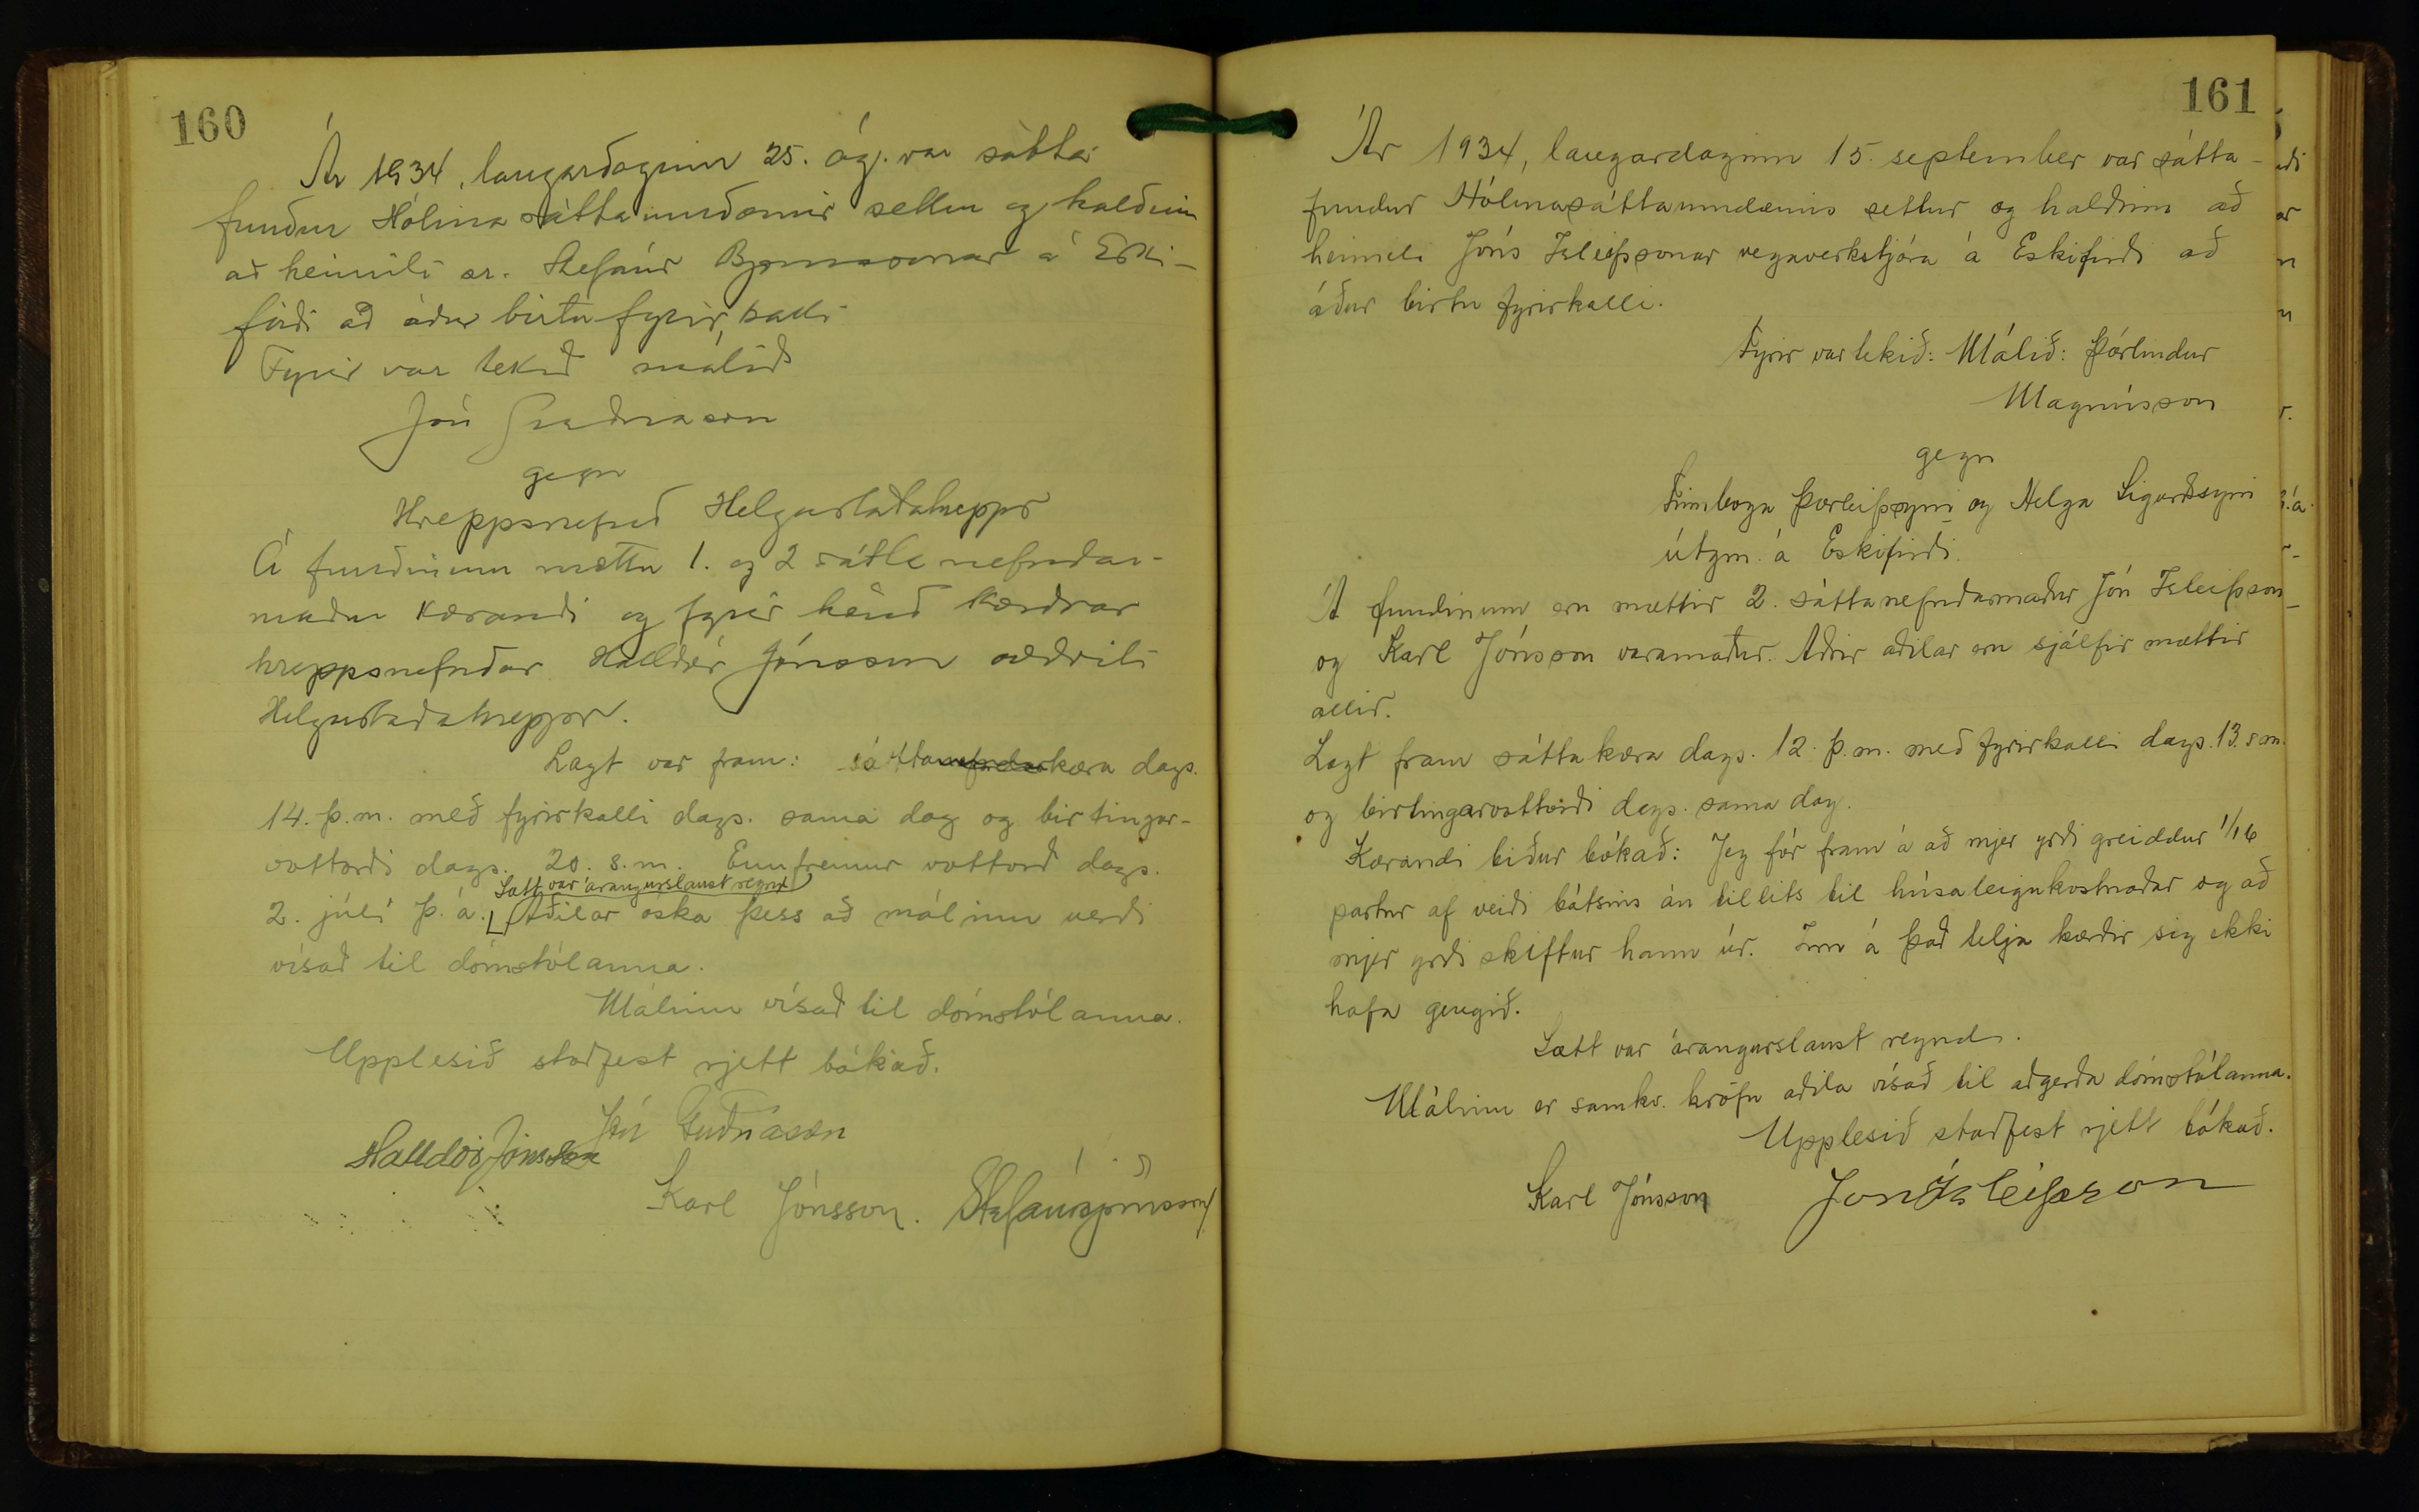 160
Ár 1934, laugardaginn 25. ág. var sátta
fundur Hólma sáttaumdæmis settur og haldinn
að heimili sr. Stefáns Björnssonar á Eski-
firði að áður birtu fyrirkalli
Fyrir var tekið málið
Jón Guðnason
gegn
Hreppsnefnd Helgustaðahrepps
Á fundinum mættu 1. og 2 sátta nefndar-
maður kærandi og fyrir hönd kærðrar
hreppsnefndar Halldór Jónsson oddviti
Helgustaðahrepps.
Lagt var fram: sáttanefndarkæra dags.
14. þ.m. með fyrirkalli dags. sama dag og birtingar-
vottorði dags. 20. s.m. Ennfremur vottorð dags.
Sætt var árangurslaust reynd
2. júlí þ.á. Aðilar óska þess að málinu verði
vísað til dómstólanna.
Málinu vísað til dómstólanna.
Upplesið staðfest rjett bókað.
Jón Guðnason
Halldór Jónsson
Karl Jónsson. Stefán Björnsson
161
Ár 1934, laugardaginn 15. september var sátta-
fundur Hólmasáttaumdæmis settur og haldinn að
heimili Jóns Ísleifssonar vegaverkstjóra á Eskifirði að
áður birtu fyrirkalli.
Fyrir var tekið: Málið: Þórlindur
Magnússon
gegn
Finnboga Þorleifssyni og Helga Sigurðssyni
útgm. á Eskifirði.
Á fundinum eru mættir 2. sáttanefndarmaður Jón Ísleifsson
og Karl Jónsson varamaður. Aðrir aðilar eru sjálfir mættir
allir.
Lagt fram sáttakæra dags. 12. þ.m. með fyrirkalli dags. 13. s m.
og birtingarvottorði dags. sama dag.
Kærandi biður bókað: Jeg fór fram á að mjer yrði greiddur 1/16
partur af veiði bátsins án tillits til húsaleigukostnaðar og að
mjer yrði skiftur hann úr. Inn á það telja kærðir sig ekki
hafa gengið.
Sætt var árangurslaust reynd.
Málinu er samkv. kröfu aðila vísað til aðgerða dómstólanna.
Upplesið staðfest rjett bókað.
Karl Jónsson Jón Ísleifsson